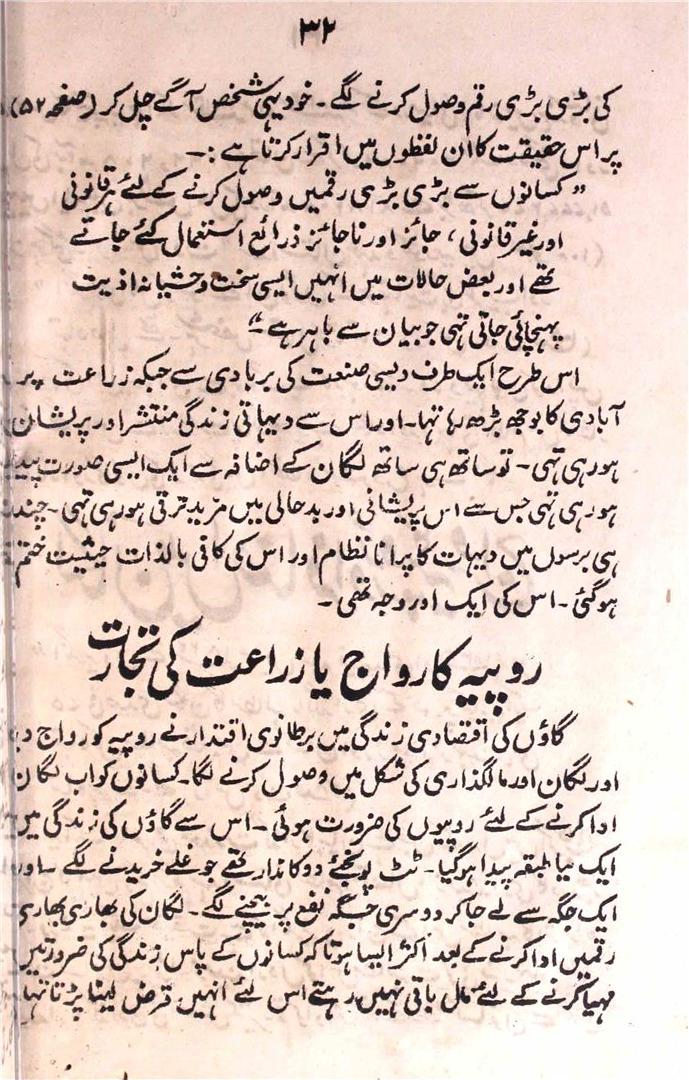 ۳۲
کی بڑی بڑی رقم وصول کرنے لگے۔ خود یہی شخص آگے چل کر (صفحہ ۵۲)
پر اس حقیقت کا ان لفظوں میں اقرار کرتا ہے :۔
” کسانوں سے بڑی بڑی رقمیں وصول کرنے کے لئے ہر قانونی
اور غیر قانونی ، جائز اور ناجائز ذرائع استعمال کئے جاتے
تھے اور بعض حالات میں انہیں ایسی سخت وحشیانہ اذیت
پہنچائی جاتی تہی جو بیان سے باہر ہے “
اس طرح ایک طرف دیسی صنعت کی بربادی سے جبکہ زراعت پر
آبادی کا بوجھ بڑھ رہا تہا۔ اور اس سے دیہاتی زندگی منتشر اور پریشان
ہو رہی تہی ۔ تو ساتھ ہی ساتھ لگان کے اضافہ سے ایک ایسی صورت
ہو رہی تہی جس سے اس پریشانی اور بدحالی میں مزید ترقی ہو رہی تہی ۔
ہی برسوں میں دیہات کا پرانا نظام اور اس کی کافی بالذات حیثیت ختم
ہو گئی ۔ اس کی ایک اور وجہ تھی ۔
روپیہ کا رواج یا زراعت کی تجارت
گاؤں کی اقتصادی زندگی میں برطانوی اقتدار نے روپیہ کو رواج
اور لگان اور مالگذاری کی شکل میں وصول کرنے لگا۔ کسانوں کو اب لگان
ادا کرنے کے لئے روپیوں کی ضرورت ہوئی ۔ اس سے گاؤں کی زندگی میں
ایک نیا طبقہ پیدا ہو گیا ۔ ٹٹ پونجئے دوکاندار تھے جو غلے خریدنے لگے ۔ اور
ایک جگہ سے لے جا کر دوسری جگہ نفع پر بیچنے لگے ۔ لگان کی بھاری بھاری
رقمیں ادا کرنے کے بعد اکثر ایسا ہوتا کہ کسانوں کے پاس زندگی کی ضرورتیں
مہیا کرنے کے لئے مال باقی نہیں رہتے اس لئے انہیں قرض لینا پڑتا تہا